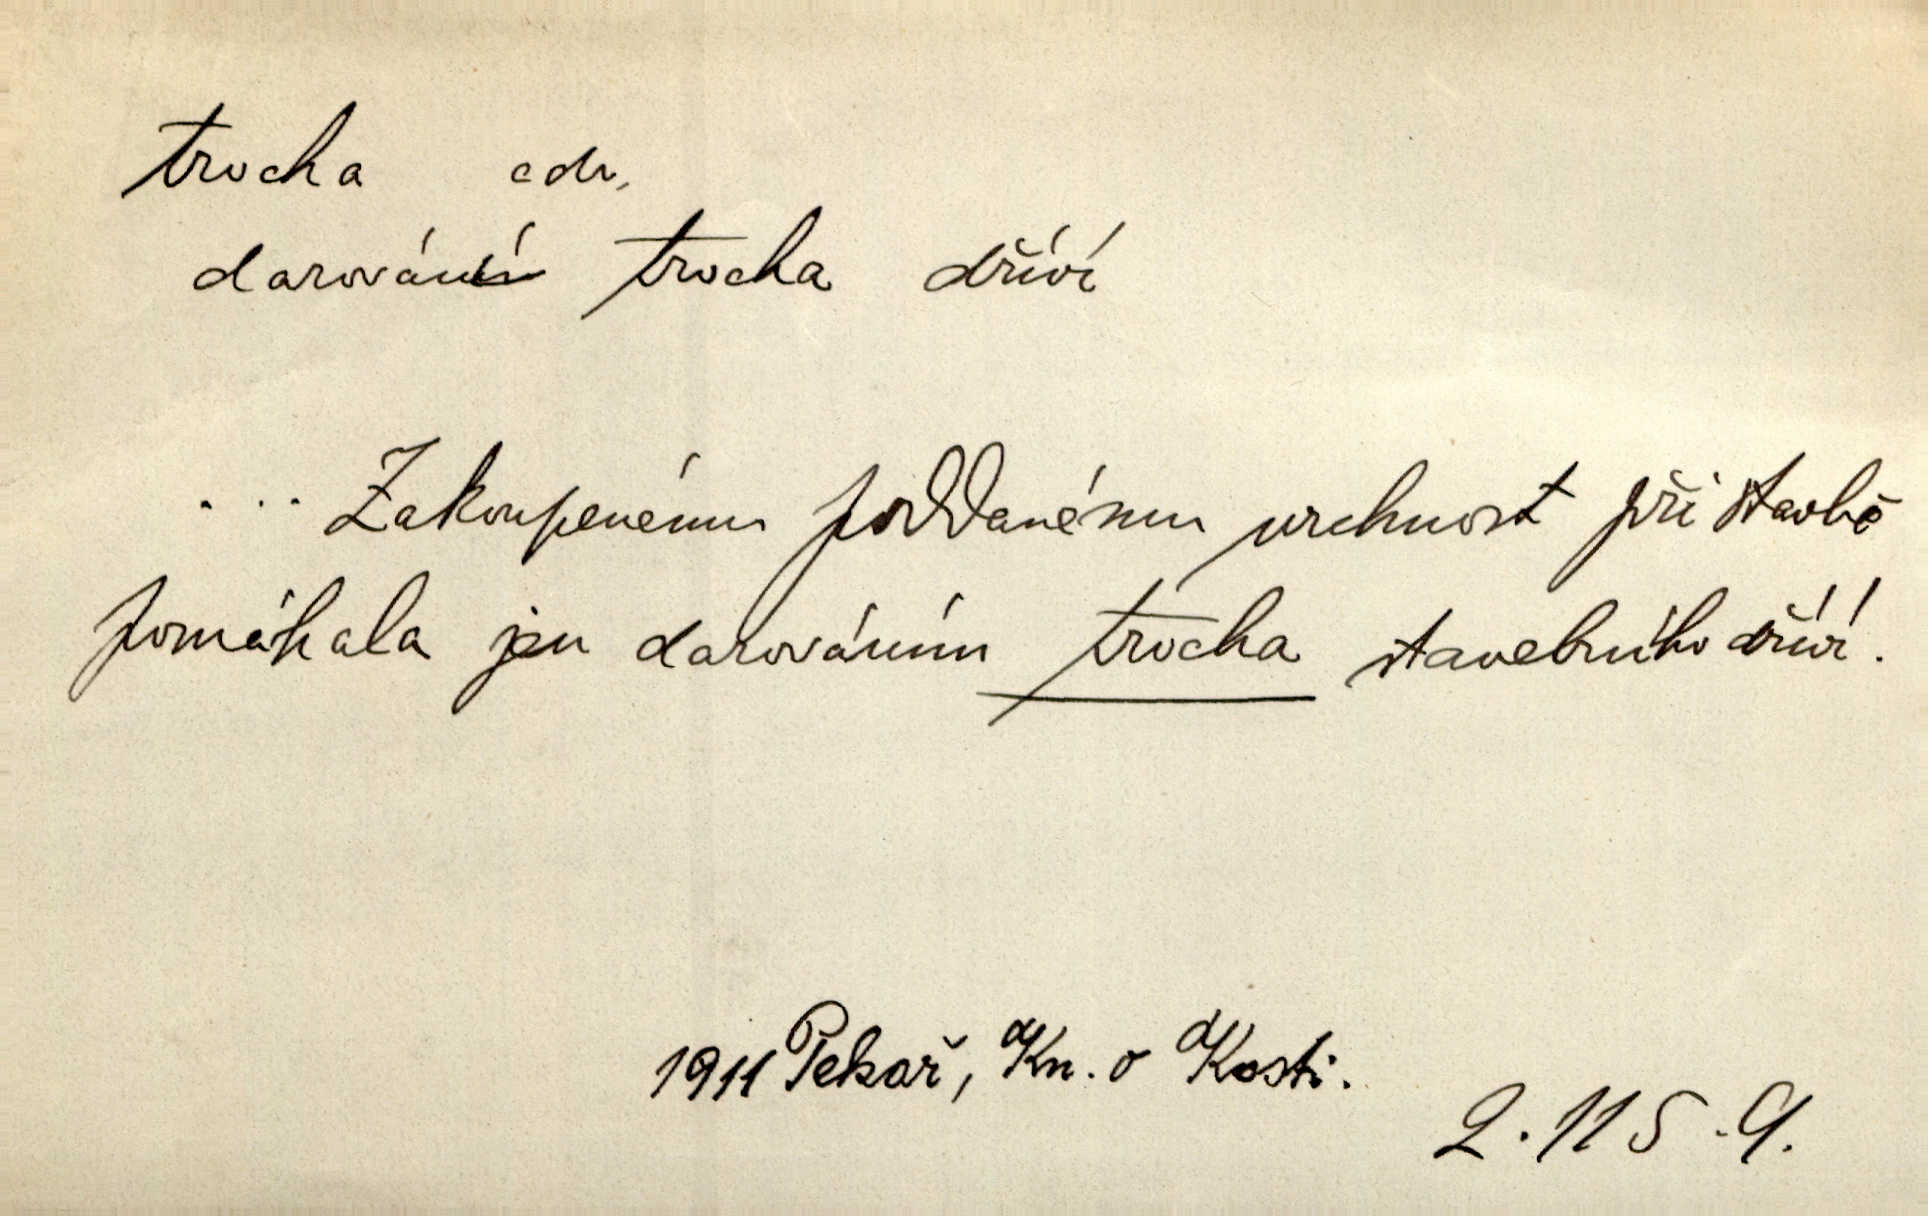 trocha adv.
darování trocha dříví
... Zakoupenému poddanému vrchnost při stavbě
pomáhala jen darováním trocha stavebního dříví.
1911 Pekař, Kn. o Kosti.
2. 115. 9.